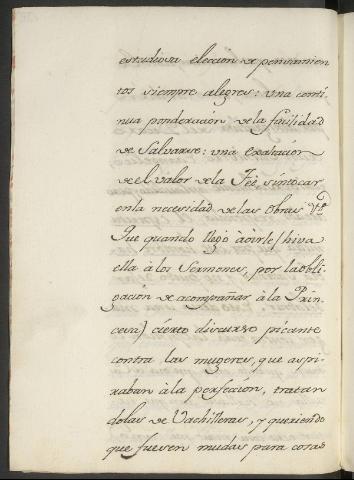 estudiosa eleccion de pensamien
tos siempre alegres: una conti
nua ponderacion de la facilidad
de Salvarse: una exaltacion
de el valor de la Feè, sin tocar
en la necesidad de las Obras
Que quando llegó à oirle / hiva
ella à los Sermones, por la obli
gacion de acompañar à la Prin
cesa) cierto discurso picante
contra las mugeres, que aspi
raban à la perfeccion, tratan
dolas de Vachilleras, y queriendo
que fuesen mudas para cosas